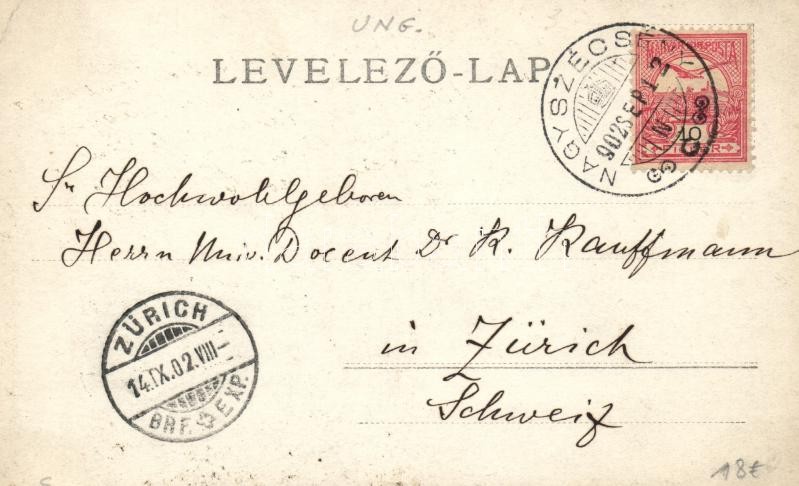 UNG.
LEVELEZŐ-LAP
NAGYSZÉCSÉNY
902 SEPT 12
MAGYAR POSTA
10
Sr Hochwohlgeboren
Herrn Univ. Docent Dr K. Kauffmann
in Zürich
Schweiz
ZÜRICH
14.IX.02.VIII
BRF. EXP.
18€